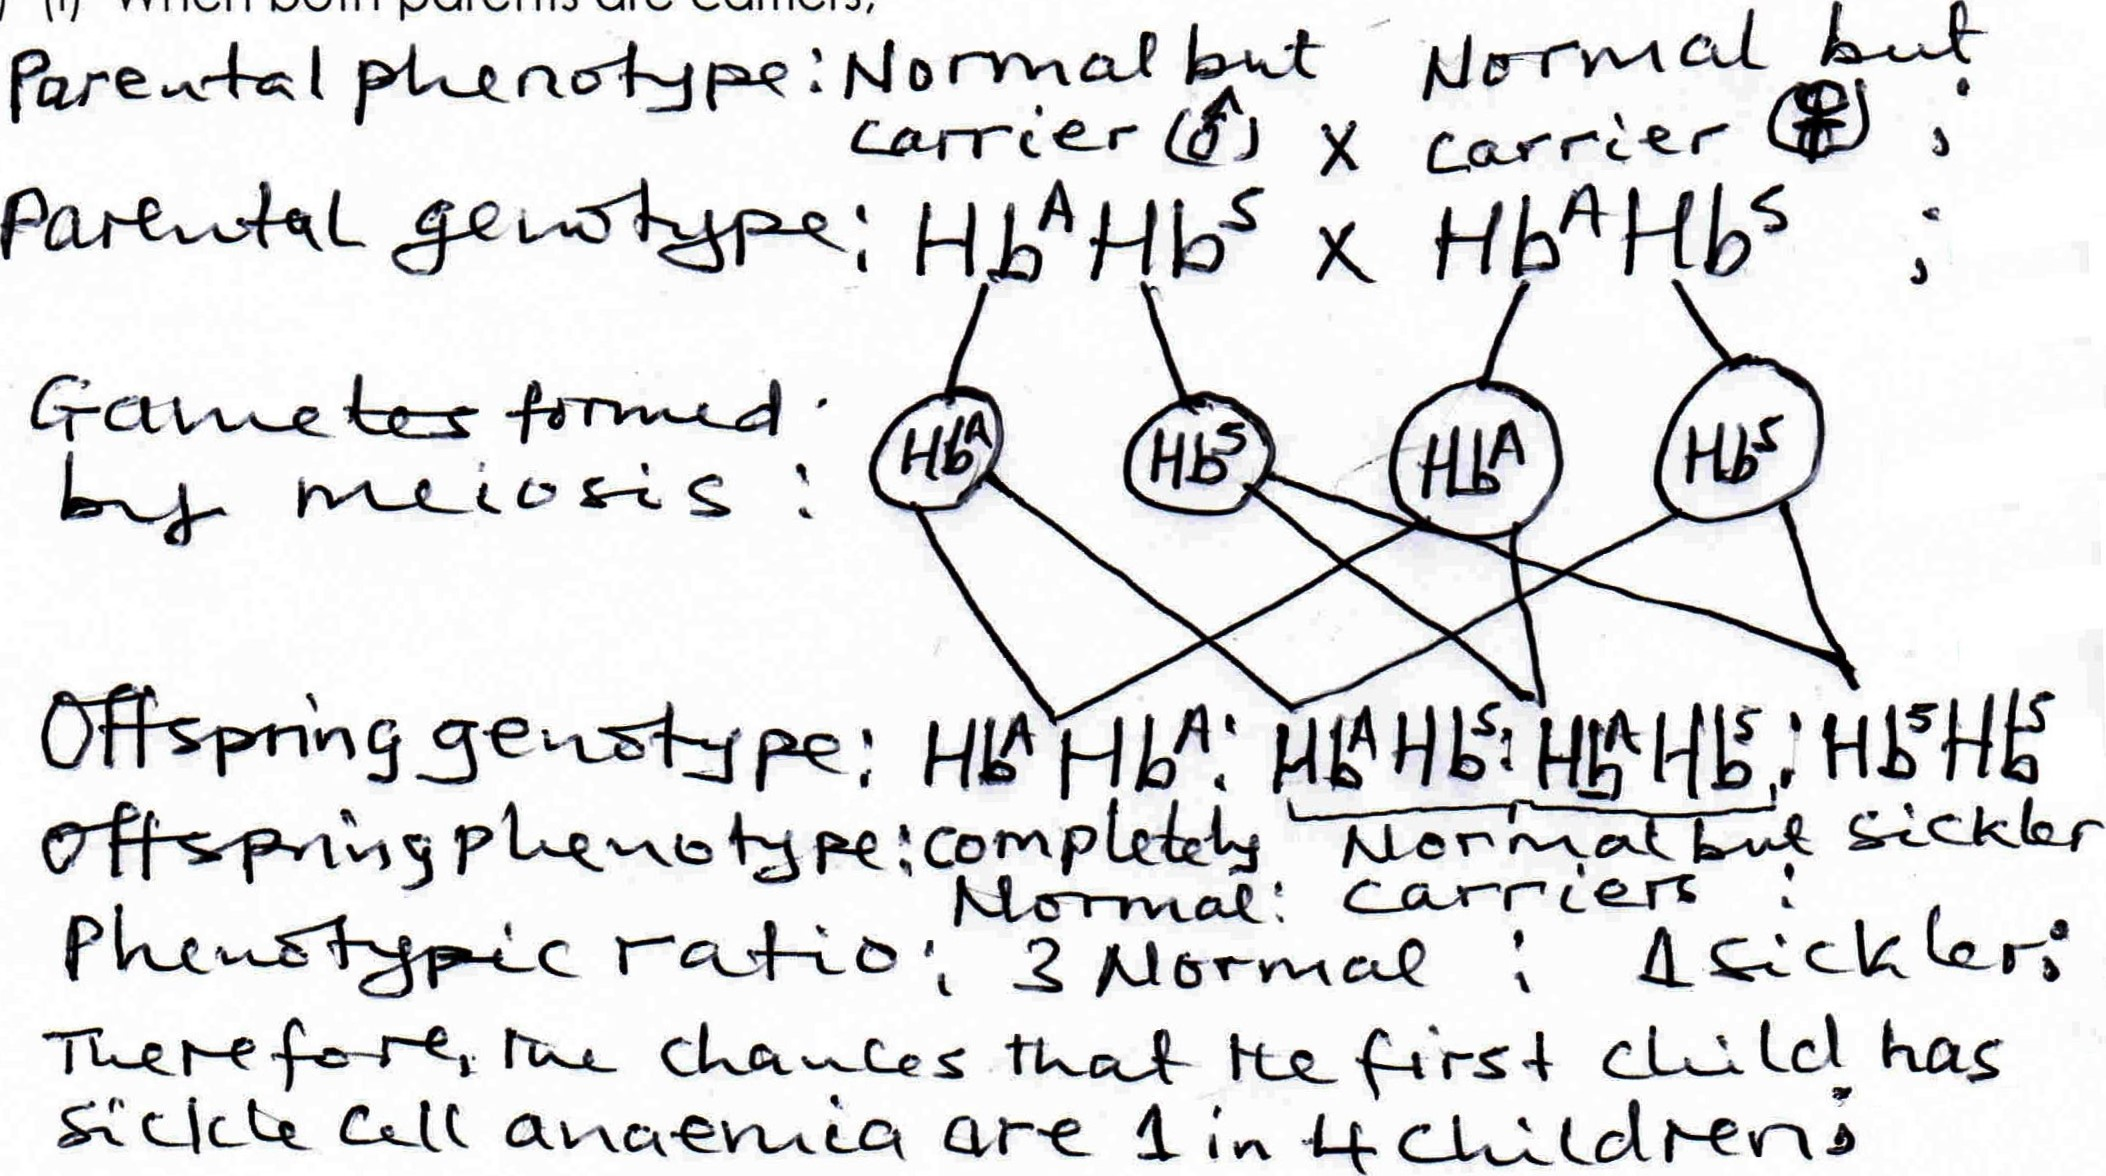 (i) When both parents are carriers;
Parental phenotype: Normal but Normal but
carrier (♂) x carrier (♀) ;
Parental genotype: Hb^A Hb^S x Hb^A Hb^S ;
Gametes formed
by meiosis : Hb^A Hb^S Hb^A Hb^S
Offspring genotype: Hb^A Hb^A : Hb^A Hb^S : Hb^A Hb^S : Hb^S Hb^S
Offspring phenotype: completely Normal but sickler
Normal: carriers :
Phenotypic ratio: 3 Normal : 1 sickler;
Therefore, the chances that the first child has
sickle cell anaemia are 1 in 4 children;